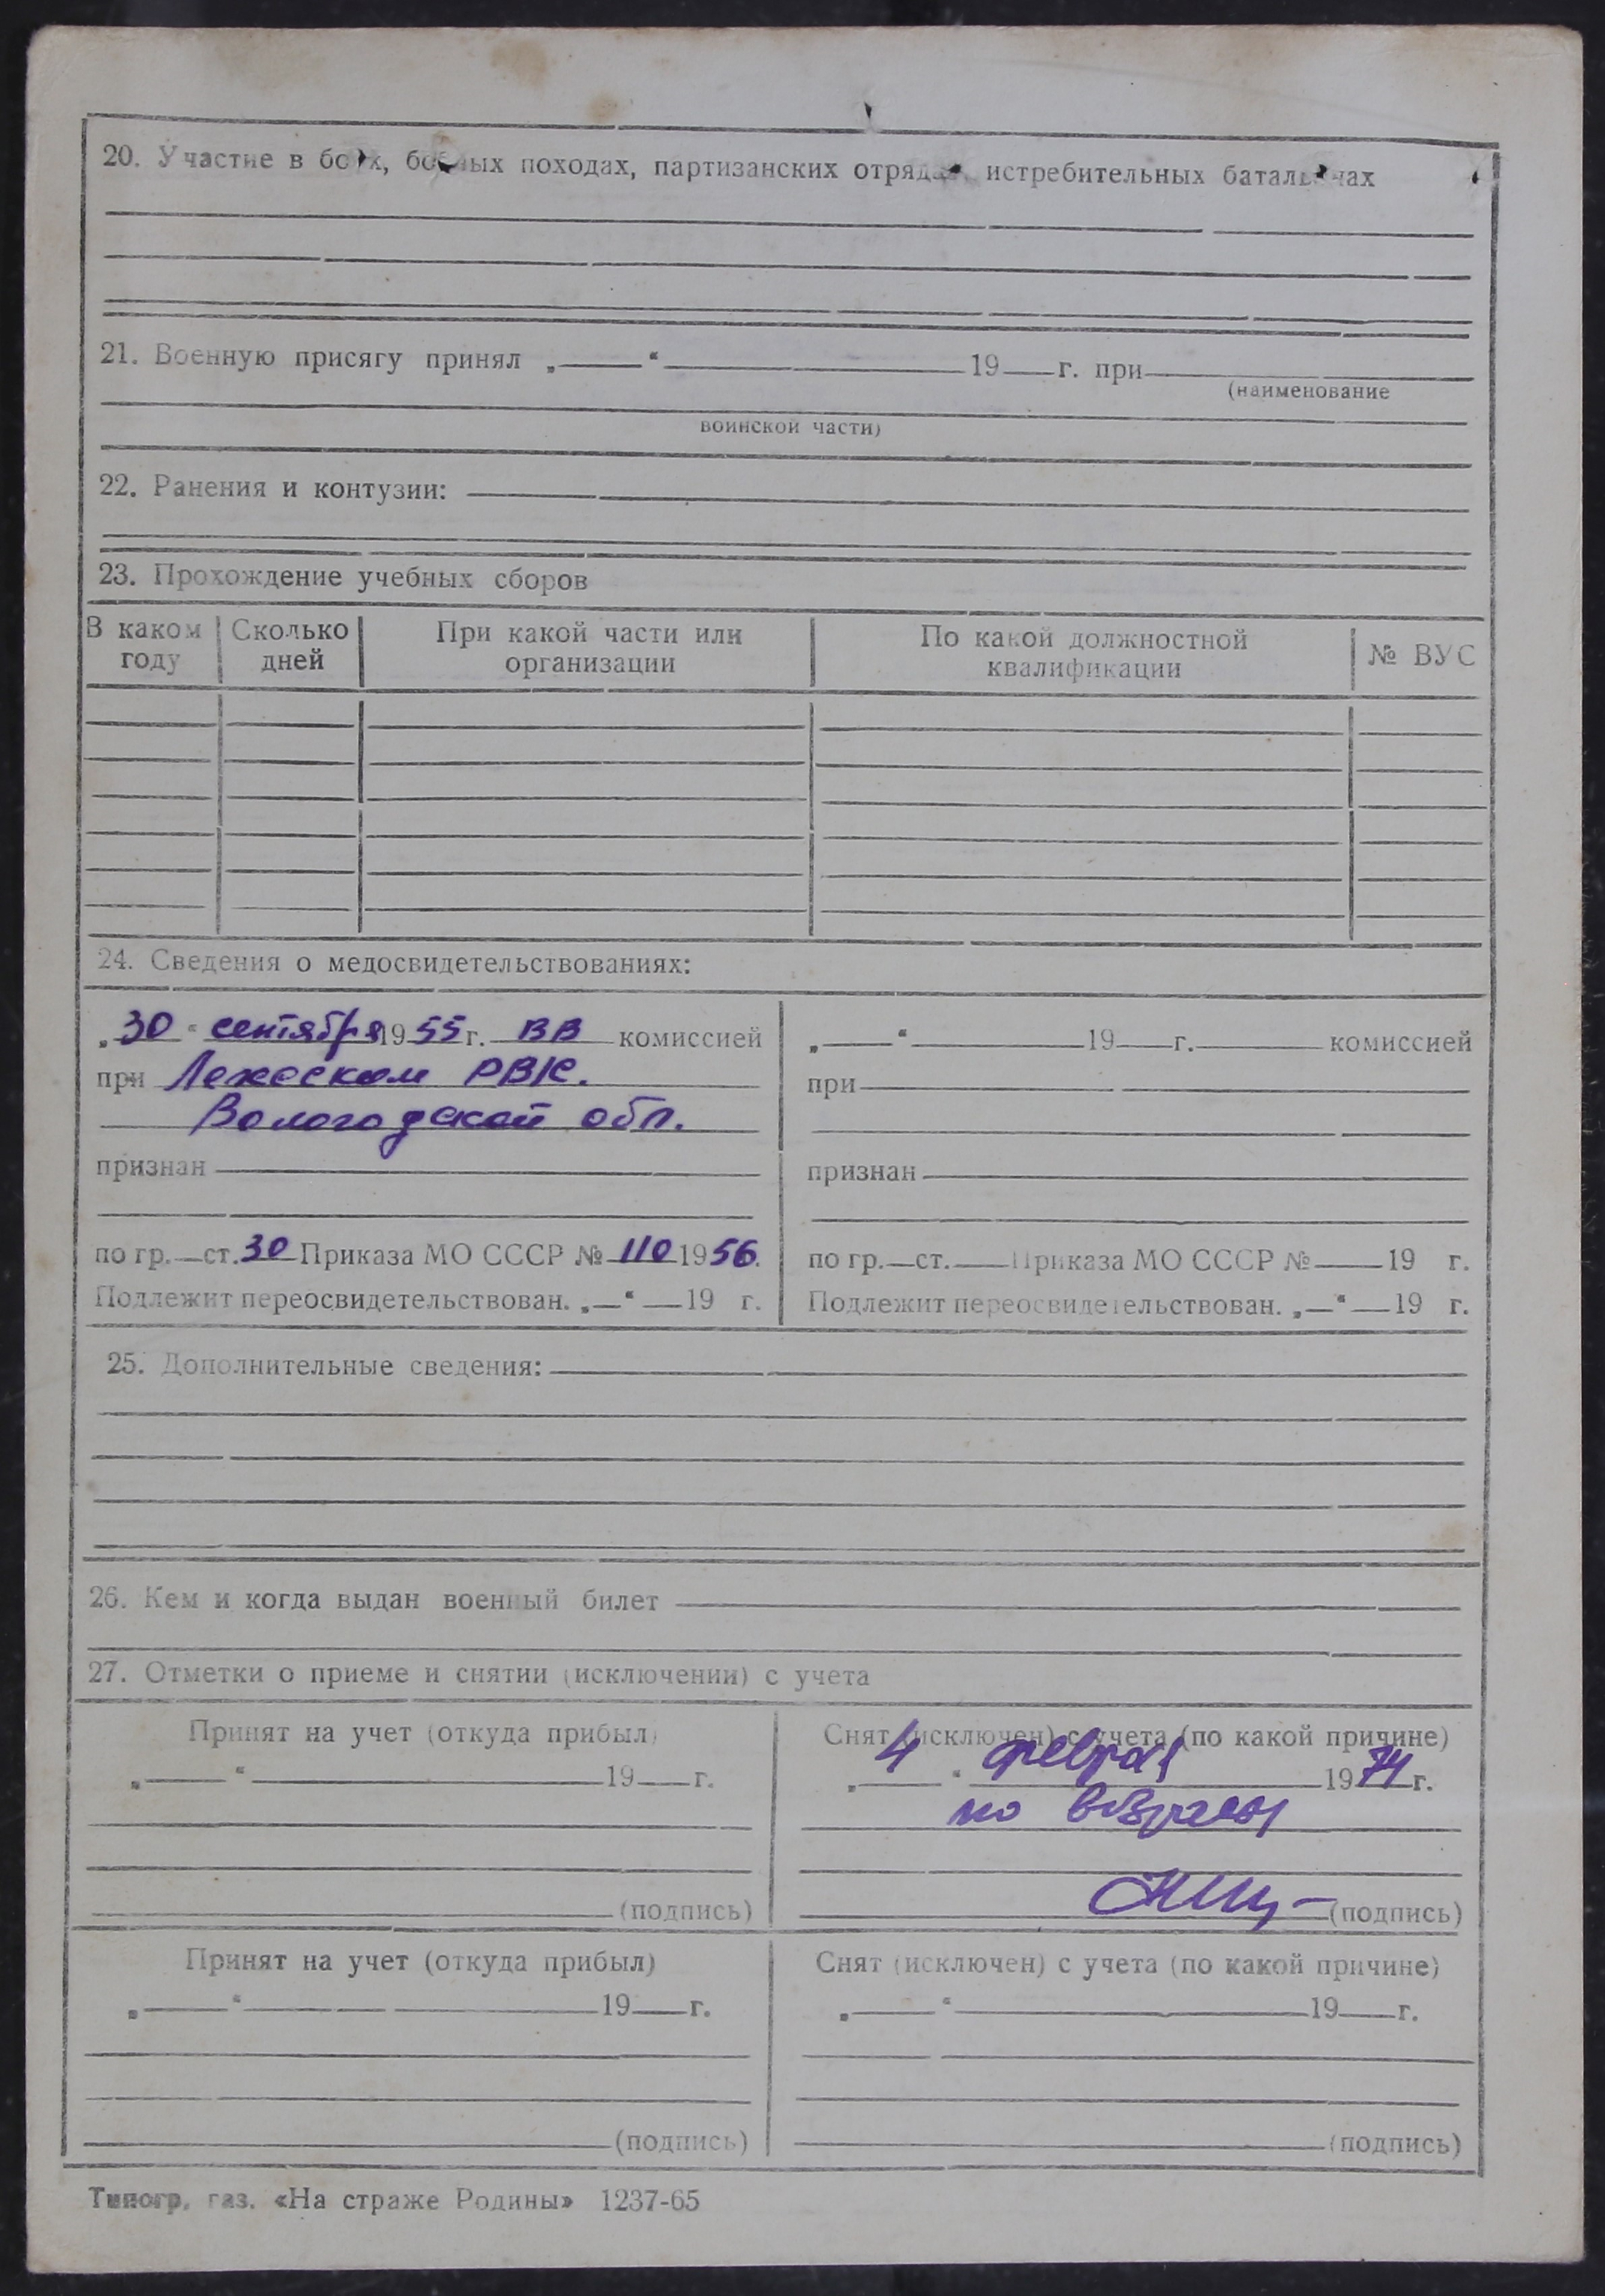 20. Участие в боях, боевых походах, партизанских отрядах, истребительных батальонах
21. Военную присягу принял „ “ 19 г. при
(наименование
воинской части)
22. Ранения и контузии:
23. Прохождение учебных сборов
В каком году Сколько дней При какой части или организации По какой должностной квалификации № ВУС
24. Сведения о медосвидетельствованиях:
„30“ сентября 1955 г. ВВ комиссией
при Лежском РВК.
Вологодской обл.
признан
по гр. ст. 30 Приказа МО СССР № 110 1956.
Подлежит переосвидетельствован. „ “ 19 г.
„ “ 19 г. комиссией
при
признан
по гр. ст. Приказа МО СССР № 19 г.
Подлежит переосвидетельствован. „ “ 19 г.
25. Дополнительные сведения:
26. Кем и когда выдан военный билет
27. Отметки о приеме и снятии (исключении) с учета
Принят на учет (откуда прибыл)
„ “ 19 г.
(подпись)
Снят (исключен) с учета (по какой причине)
„4“ февраля 1974 г.
по возрасту
(подпись)
Принят на учет (откуда прибыл)
„ “ 19 г.
(подпись)
Снят (исключен) с учета (по какой причине)
„ “ 19 г.
(подпись)
Типогр. газ. «На страже Родины» 1237-65